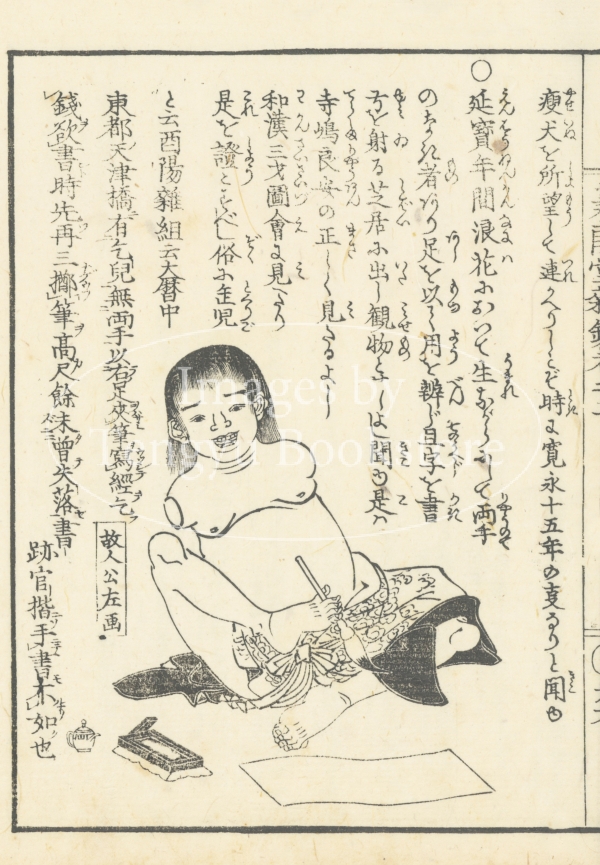 瘦犬を所望して連かへりしとぞ時は寛永十五年の夏なりと聞ゆ
○延寳年間浪花において生ながらにして両手
のなき者あり足を以て用を辨じ且字を書
弓を射る芝居に出し観物とせしは聞ゆ是は
寺嶋良安の正しく見たるよし
和漢三才圖會に見えたり
是を證とすべし俗に児
と云酉陽雜組云大暦中
東都天津橋有乞兒無両手以右足夾筆寫經乞
錢欲書時先再三擲筆髙尺餘未曾失落書
跡官揩手書不如也
故人公左画
Images by
Tengyu Bookstore